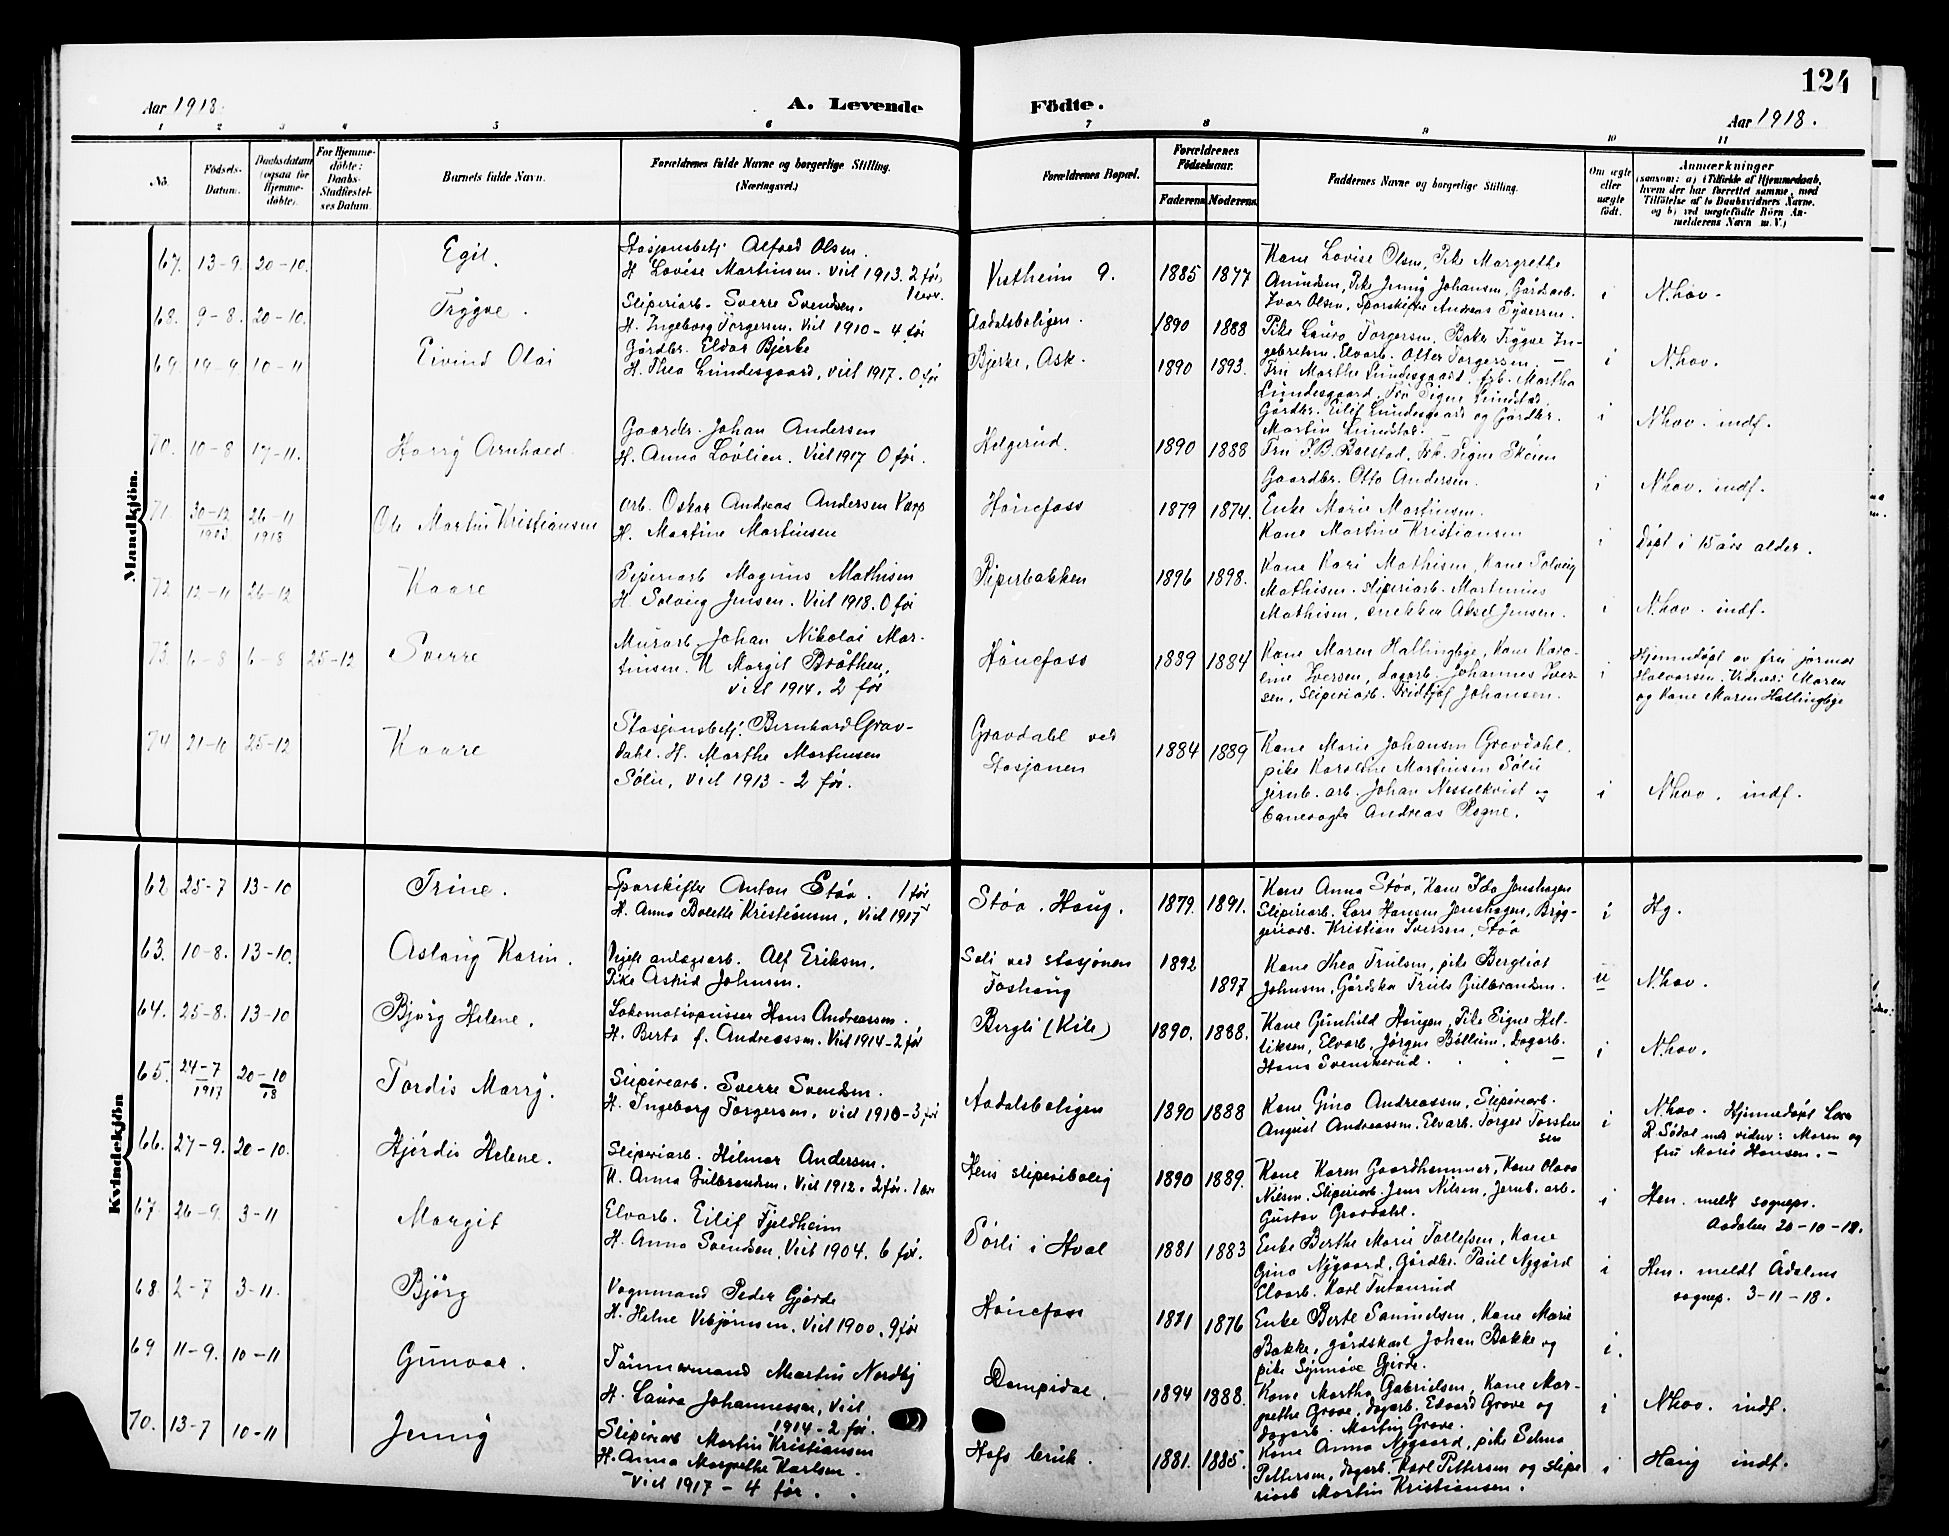 124
Aar 1918.
A. Levende Födte.
Aar 1918.
1 2 3 4 5 6 7 8 9 10 11
No.
Födsels-Datum.
Daabsdatum (ogsaa for Hjemmedöbte).
For Hjemmedöbte: Daabs-Stadfæstelses Datum.
Barnets fulde Navn.
Forældrenes fulde Navne og borgerlige Stilling. (Næringsvei.)
Forældrenes Bopæl.
Forældrenes Födselsaar.
Faderens Moderens
Faddernes Navne og borgerlige Stilling.
Om ægte eller uægte födt.
Anmærkninger
(saasom: a) i Tilfælde af Hjemmedaab, hvem der har forrettet samme, med Tilföielse af to Daabsvidners Navne, og b) ved uægtefödte Börn Anmelderens Navn m. V.)
Mandkjön.
67. 13-9. 20-10. Egil.
Stasjonsbetj. Alfred Olsen.
H. Lovise Martinsen. Viet 1913. 2 før
Vestheim 9. 1885 1877
Kone Lovise Olsen, Pike Margrethe
Amundsen, Pike Jenny Johansen, Gårdsarb.
Ivar Olsen, Sporskifter Andreas Syversen.
i N.hov.
68. 9-8. 20-10. Trygve.
Sliperiarb. Sverre Svendsen.
H. Ingeborg Torgersen. Viet 1910 - 4 før
Aadalsboligen. 1890 1888
Pike Laura Torgersen, Trygve In-
gebretsen, Elvarb. Otter Torgersen. -
i N.hov.
69 19-9 10-11 Eivind Olai
Gårdbr. Eldor Bjerke
H. Thea Lundesgaard, viet 1917. 0 før
Bjerke, Ask. 1890 1893.
Fru Marthe Lundesgaard. frk. Martha
Lundesgaard, Fru Signe Lundstad,
Gårdbr. Eilif Lundesgaard og Gårdbr.
Martin Lundstad.
i N.hov. indf.
70. 10-8 17-11. Harry Arnhold.
Gaardbr. Johan Andersen
H. Anna Løvlien. Viet 1917 0 før.
Helgerud. 1890 1888
Fru Bolstad, Frk. Signe Skøien
Gaardbr. Otto Andersen.
i N.hov. indf.
71. 30-12 1903 26-11 1918 Ole Martin Kristiansen
Arb. Oskar Andreas Andersen Karp
H. Martine Martinsen
Hönefoss 1879 1874.
Enke Marie Martinsen.
Kone Martine Kristiansen
i døpt i 15 års alder.
72 12-11 26-12 Kaare
Piperiarb Magnus Mathisen
H. Solveig Jensen. Viet 1918. 0 før
Piperbakken 1896 1898.
Kone Kari Mathisen, Kone Solveig
Mathisen. Sliperiarb. Martinius
Mathisen, snekker Aksel Jensen.
i N.hov. indf.
73. 6-8 6-8 25-12 Sverre
Murarb. Johan Nikolai Mar-
tinsen. H Margit Bråthen,
viet 1914. 2 før
Hönefoss 1889 1884
Kone Maren Hallingbye, Kone Karo-
line Iversen, dagarb. Johannes Iver-
sen, Sliperiarb. Fridtjof Johansen.
i Hjemmedøpt av fru jormor
Halvorsen. Vidner: Maren
og Kone Maren Hallingbye
74 21-10 25-12 Kaare
Stasjonsbetj. Bernhard Grav-
dahl. H. Marthe Martinsen
Sølie, viet 1913 - 2 før.
Gravdahl ved
Stasjonen 1884 1889
Kone Marie Johansen Gravdahl.
pike Karoline Martinsen Sølie
jernb. arb. Johan Nesselkvist og
banevogter Andreas Rogne.
i N.hov. indf.
Kvindekjön
62 25-7 13-10 Trine.
Sporskifter Anton Støa. 1 før
H. Anna Bolette Kristiansen, viet 1917
Støa. Haug. 1879. 1891.
Kone Anna Støa, Kone Ida Jonshagen
Sliperiarb. Lars Hansen Jonshagen, Bryg-
geriarb. Kristian Iversen, Støa
i Hg.
63. 10-8. 13-10. Aslaug Karin.
Vejr anlægsarb. Alf Eriksen.
Pike Astrid Johnsen.
Soli ved stasjonen
Foshaug 1892 1897
Kone Thea Trulsen, pike Bergliot
Johnsen, Gårdska Truls Gulbrandsen.
u N.hov.
64. 25-8. 13-10 Bjørg Helene.
Lokomotivpusser Hans Andreassen.
H. Berta f. Andreassen. Viet 1914 - 2 før
Bergli (Kile) 1890. 1888.
Kone Gunhild Haugen, Pike Signe Hel-
liksen, Elvarb. Jørgen Bøllum, dagarb.
Hans Svenskerud.
i N.hov.
65. 24-7 1917 20-10 18 Tordis Marry.
Sliperiarb. Sverre Svendsen.
H. Ingeborg Torgersen, viet 1910 - 3 før
Aadalsboligen 1890 1888
Kone Gina Andreassen, Sliperiarb.
August Andreassen, Elvarb. Torger Torsten-
sen
i N.hov. Hjemmedøpt
R. Sødal med vidner: Maren og
fru Marie Hansen. -
66. 27-9. 20-10. Hjördis Helene.
Sliperiarb. Hilmar Andersen.
H. Anna Gulbrandsen. Viet 1912. 2 før.
Hens sliperibolig 1890 1889.
Kone Karen Gaardhammer, Kone Olava
Nilsen, Sliperiarb. Jens Nilsen, Jernb. arb.
Gustav Gravdahl.
i Hen. meldt sognepr.
Aadalen 20-10-18.
67. 26-9. 3-11 Margit
Elvarb. Eilif Fjeldheim
H. Anna Svendsen, Viet 1904. 6 før.
Sørli i Hval 1881 1883
Enke Berthe Marie Tollefsen, Kone
Gina Nygaard, Gårdbr. Paul Nygård
Elvarb. Karl Tutanrud
i Hen. meldt Ådalens
sognep. 3-11-18.
68. 2-7 3-11. Bjørg
Vognmand Peder Gjørde
H. Helene Vebjørnsen, Viet 1900. 9 før
Hönefoss 1871 1876
Enke Berte Samuelsen, Kone Marie
Bakke, gårdskarl Johan Bakke og
pike Synnøve Gjørde.
i.
69 11-9. 10-11 Gunvor.
Tömmermand Martin Nordby
H. Laura Johannessen, viet
1914 - 2 før.
Dampidal. 1894 1888.
Kone Martha Gabrielsen, Kone Mar-
grethe Grove, dagarb. Edvard Grove og
dagarb. Martin Grove.
i N.hov. indf.
70. 13-7 10-11 Jenny
Sliperiarb Martin Kristiansen
H. Anna Margrethe Karlsen.
Viet 1917 - 4 før.
Hofs bruk. 1881. 1885.
Kone Anna Nygaard, pike Selma
Pettersen, dagarb. Karl Pettersen og slipe-
riarb Martin Kristiansen.
i Haug indf.